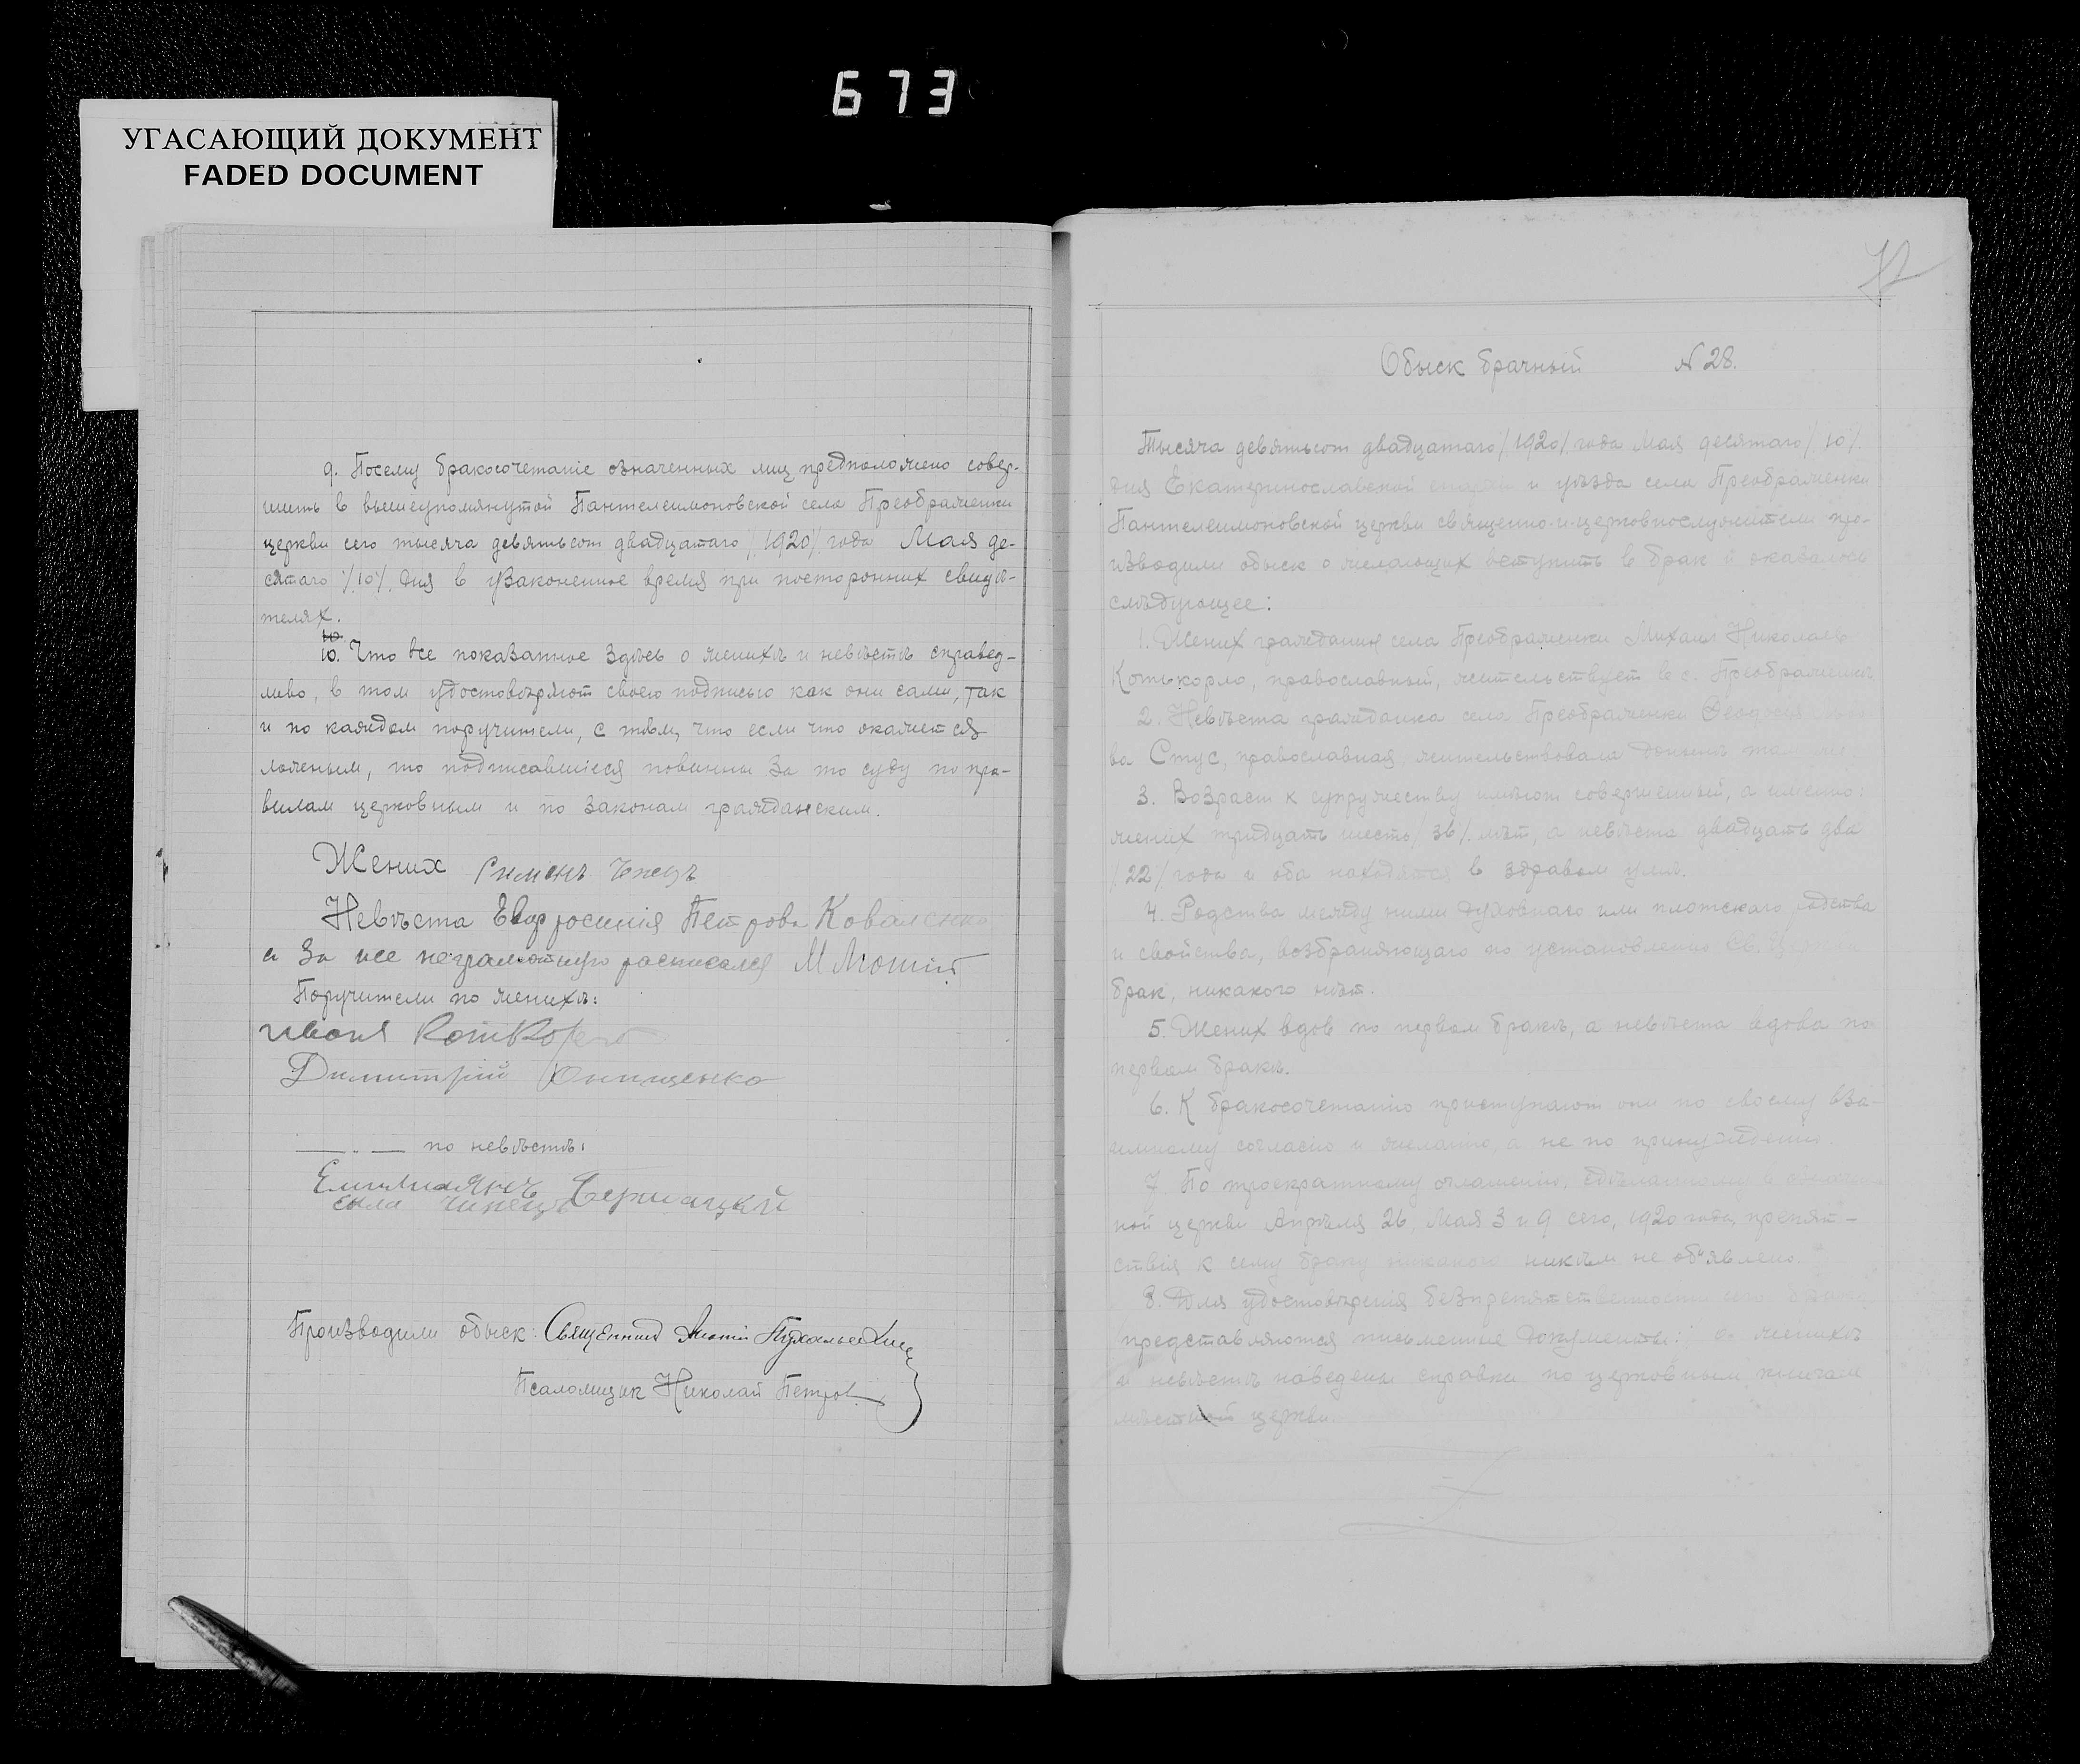 673
УГАСАЮЩИЙ ДОКУМЕНТ
FADED DOCUMENT
9. Посему бракосочетанiе означенных лиц предположено совер-
шить в вышеупомянутой Пантелеимоновской села Преображенки
церкви сего тысяча девятьсот двадцатаго /1920/ года Мая де-
сятаго /10/ дня в узаконенное время при посторонних свидѣ-
телях.
10. Что все показанное здѣсь о женихѣ и невѣстѣ справед-
ливо, в том удостовѣряют своею подписью как они сами, так
и по каждом поручители, с тѣм, что если что окажется
ложным, то подписавшiеся повинны за то суду по пра-
вилам церковным и по законам гражданским.
Жених
Невѣста Евфросинiя Петрова Коваленко
а за нее неграмотную росписался М
Поручители по женихѣ:
Димитрiй Онищенко
— „ — по невѣстѣ:
Производили обыск: Священник
Псаломщик Николай Петров
Обыск брачный N 28.
Тысяча девятьсот двадцатаго /1920/ года Мая десятаго /10/
дня Екатеринославской епархiи и уѣзда села Преображенки
Пантелеимоновской церкви священно-и-церковнослужители про-
изводили обыск о желающих вступить в брак и оказалось
слѣдующее:
1. Жених гражданин села Преображенки Михаил Николаев
Котькорло, православный, жительствует в с. Преображенкѣ
2. Невѣста гражданка села Преображенки Феодосия
ва Стус, православная, жительствовала донынѣ там же
3. Возраст к супружеству имѣют совершенный, а именно:
жених тридцать шесть /36/ лѣт, а невѣста двадцать два
/22/ года и оба находятся в здравом умѣ.
4. Родства между ними духовнаго или плотскаго родства
и свойства, возбраняющаго по установленiю Св. Церкви
брак, никакого нѣт.
5. Жених вдов по первом бракѣ, а невѣста вдова по
первом бракѣ.
6. К бракосочетанiю приступают они по своему вза-
имному согласiю и желанiю, а не по принужденiю.
7. По троекратному оглашенiю, сдѣланному в означен-
ной церкви Апрѣля 26, Мая 3 и 9 сего, 1920 года, препят-
ствiя к сему браку никакого никѣм не объявлено.
8. Для удостовѣренiя безпрепятственности сего брака
представляются письменные документы: о женихѣ
и невѣстѣ наведены справки по церковным книгам
мѣстной церкви.